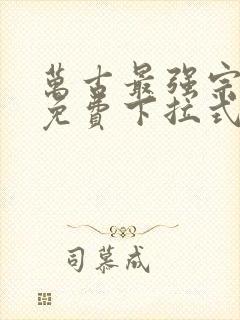 萬古最强宗
免費下拉式
司慕成